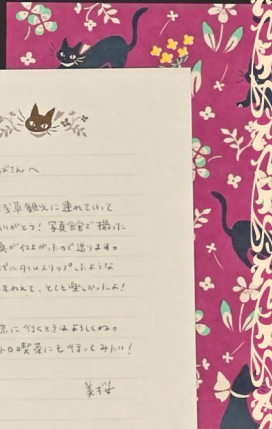 ばさんへ
浅草観光に連れていって
りがとう！写真館で撮った
真が仕上がったので送ります。
代にタイムスリップしたような
味わえて、とても楽しかったよ！
京に行くときはよろしくね。
トロ喫茶にも行ってみたい！
美桜